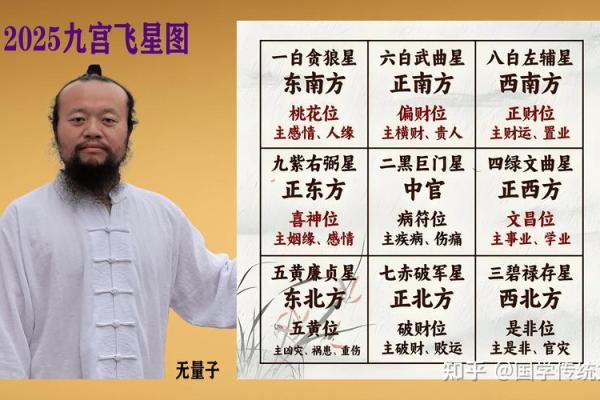 2025九宫飞星图
无量子
一白贪狼星
东南方
桃花位
主感情、人缘
六白武曲星
正南方
偏财位
主横财、贵人
八白左辅星
西南方
正财位
主财运、置业
九紫右弼星
正东方
喜神位
主姻缘、感情
二黑巨门星
中官
病符位
主疾病、伤痛
四绿文曲星
正西方
文昌位
主事业、学业
五黄廉贞星
东北方
五黄位
主凶灾、祸患、重伤
七赤破军星
正北方
破财位
主破财、败运
三碧禄存星
西北方
是非位
主是非、官灾
知乎 @国学传统